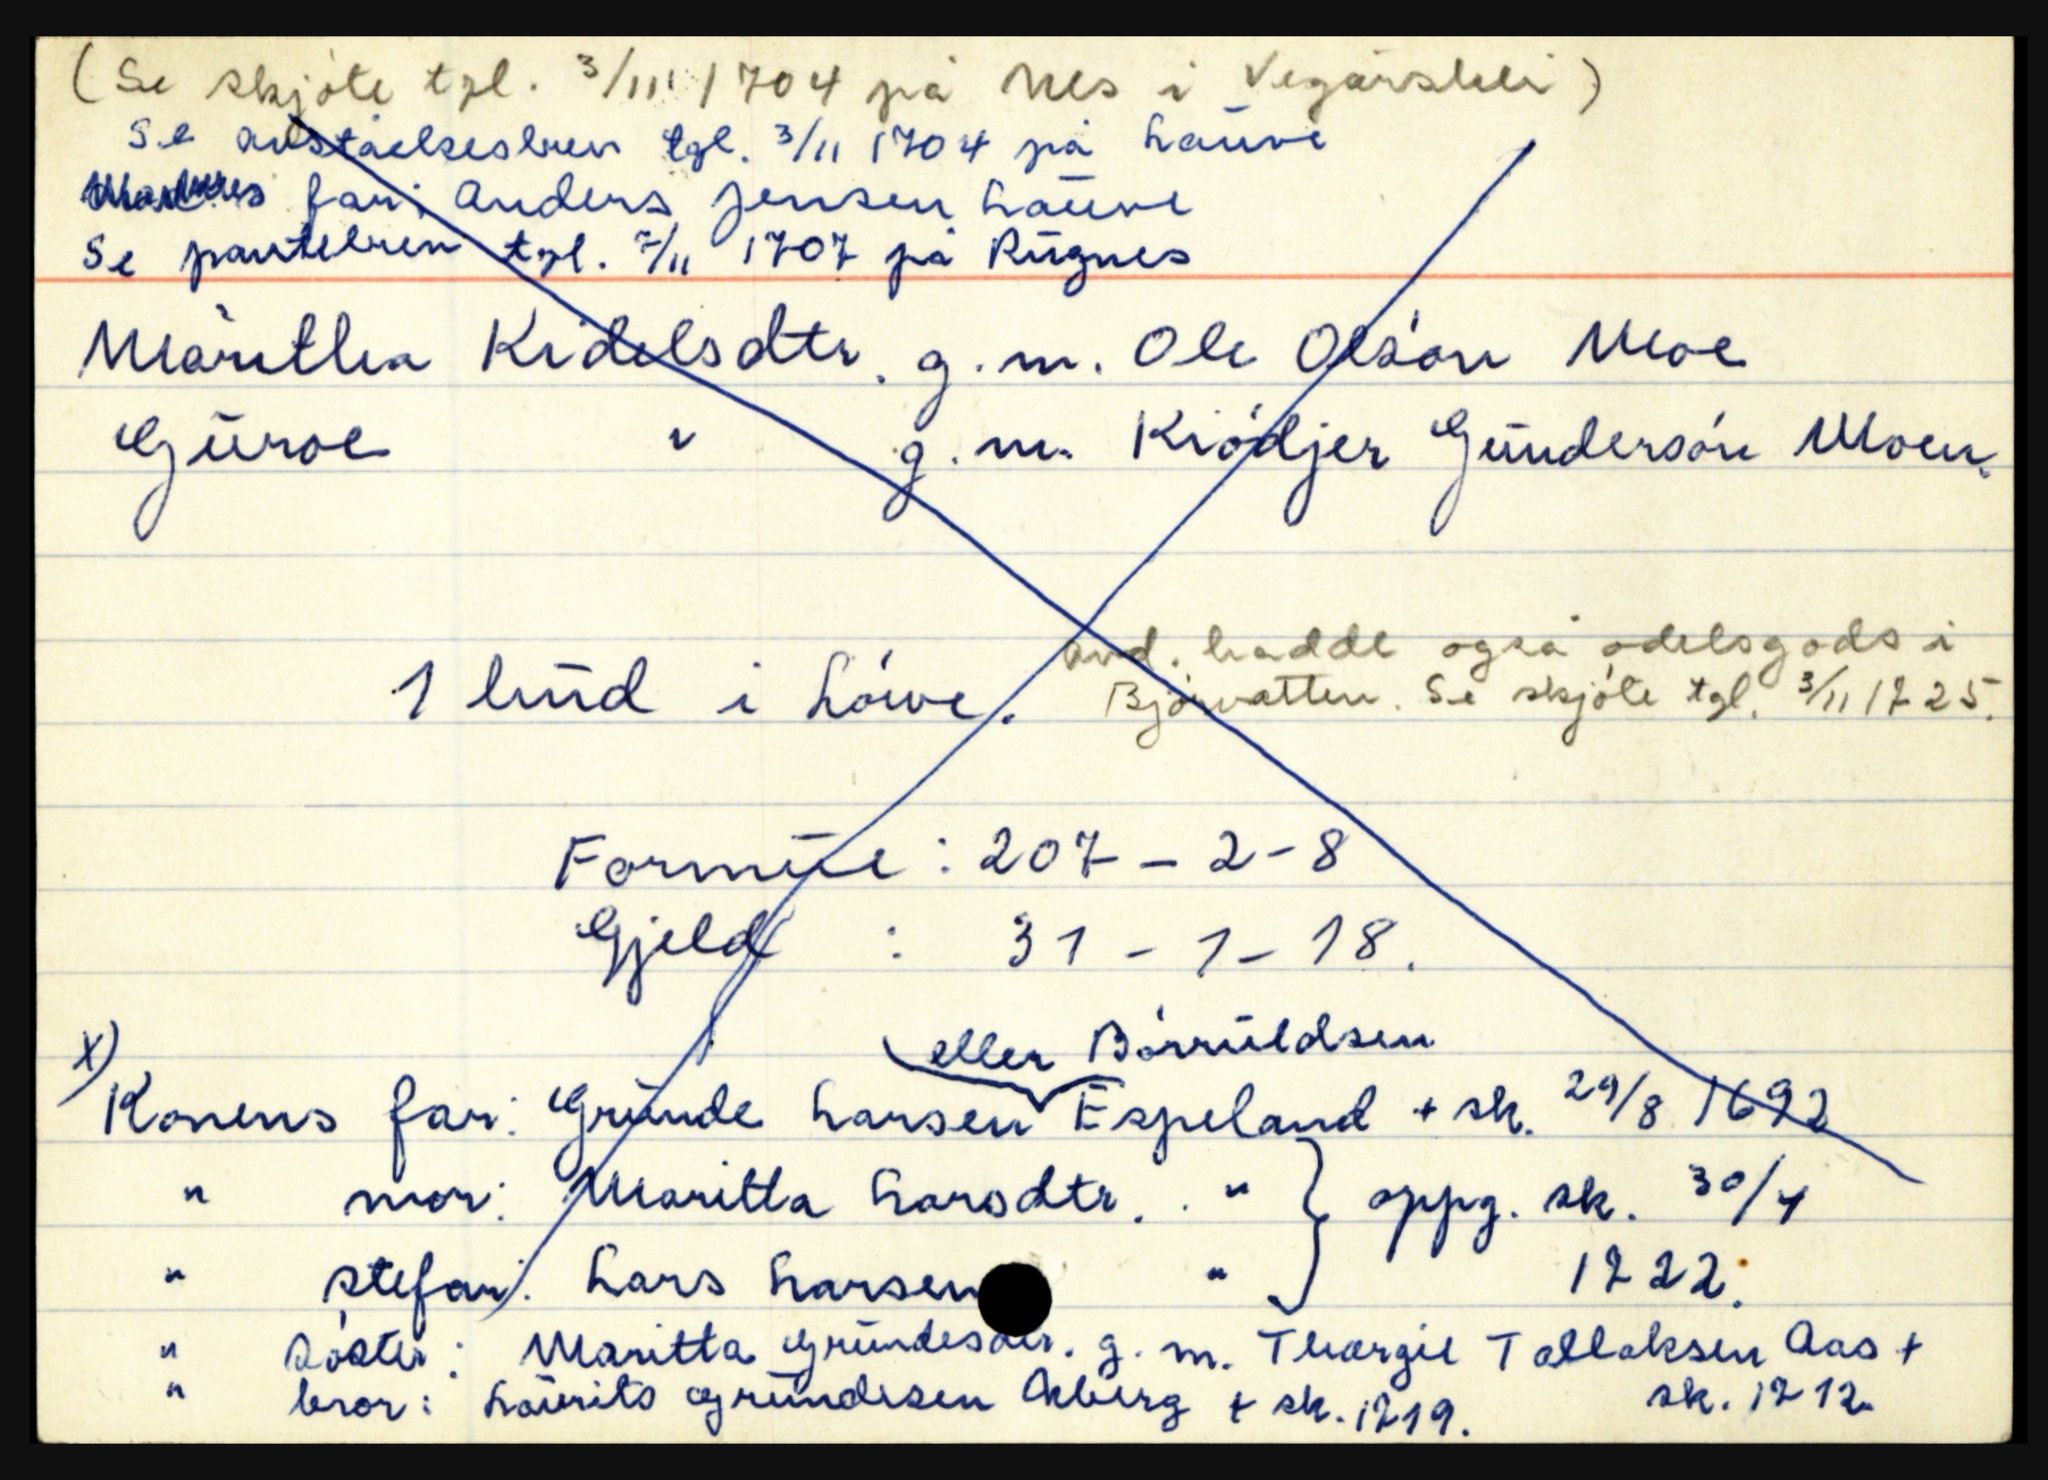 (Se skjøte tgl. 3/III 1704 på Nes i Vegårshei)
Se avståelsesbrev tgl. 3/11 1704 på Lauve
far: Anders Jensen Lauve
Se pantebrev tgl. 7/11 1707 på Rugnes
Maritha Kidelsdtr. g.m. Ole Olsøn Moe
Guroe " g.m. Kiødjer Gundersøn Moen.
avd. hadde også odelsgods i
1 hud i Løwe. Bjørvatten. Se skjøte tgl. 3/11 1725.
Formue : 207 - 2 - 8
Gjeld : 31 - 1 - 18.
eller Børruldsen
x) Konens far: Grunde Larsen Espeland + sk. 29/8 1692
" mor: Maritta Larsdtr. " } oppg. sk. 30/4
" stefar: Lars Larsen " 1722.
" søster: Maritta Grundesdtr. g.m. Thorgie Tallaksen Aas +
" bror: Laurits Grundesen Akberg + sk. 1719. sk. 1712.